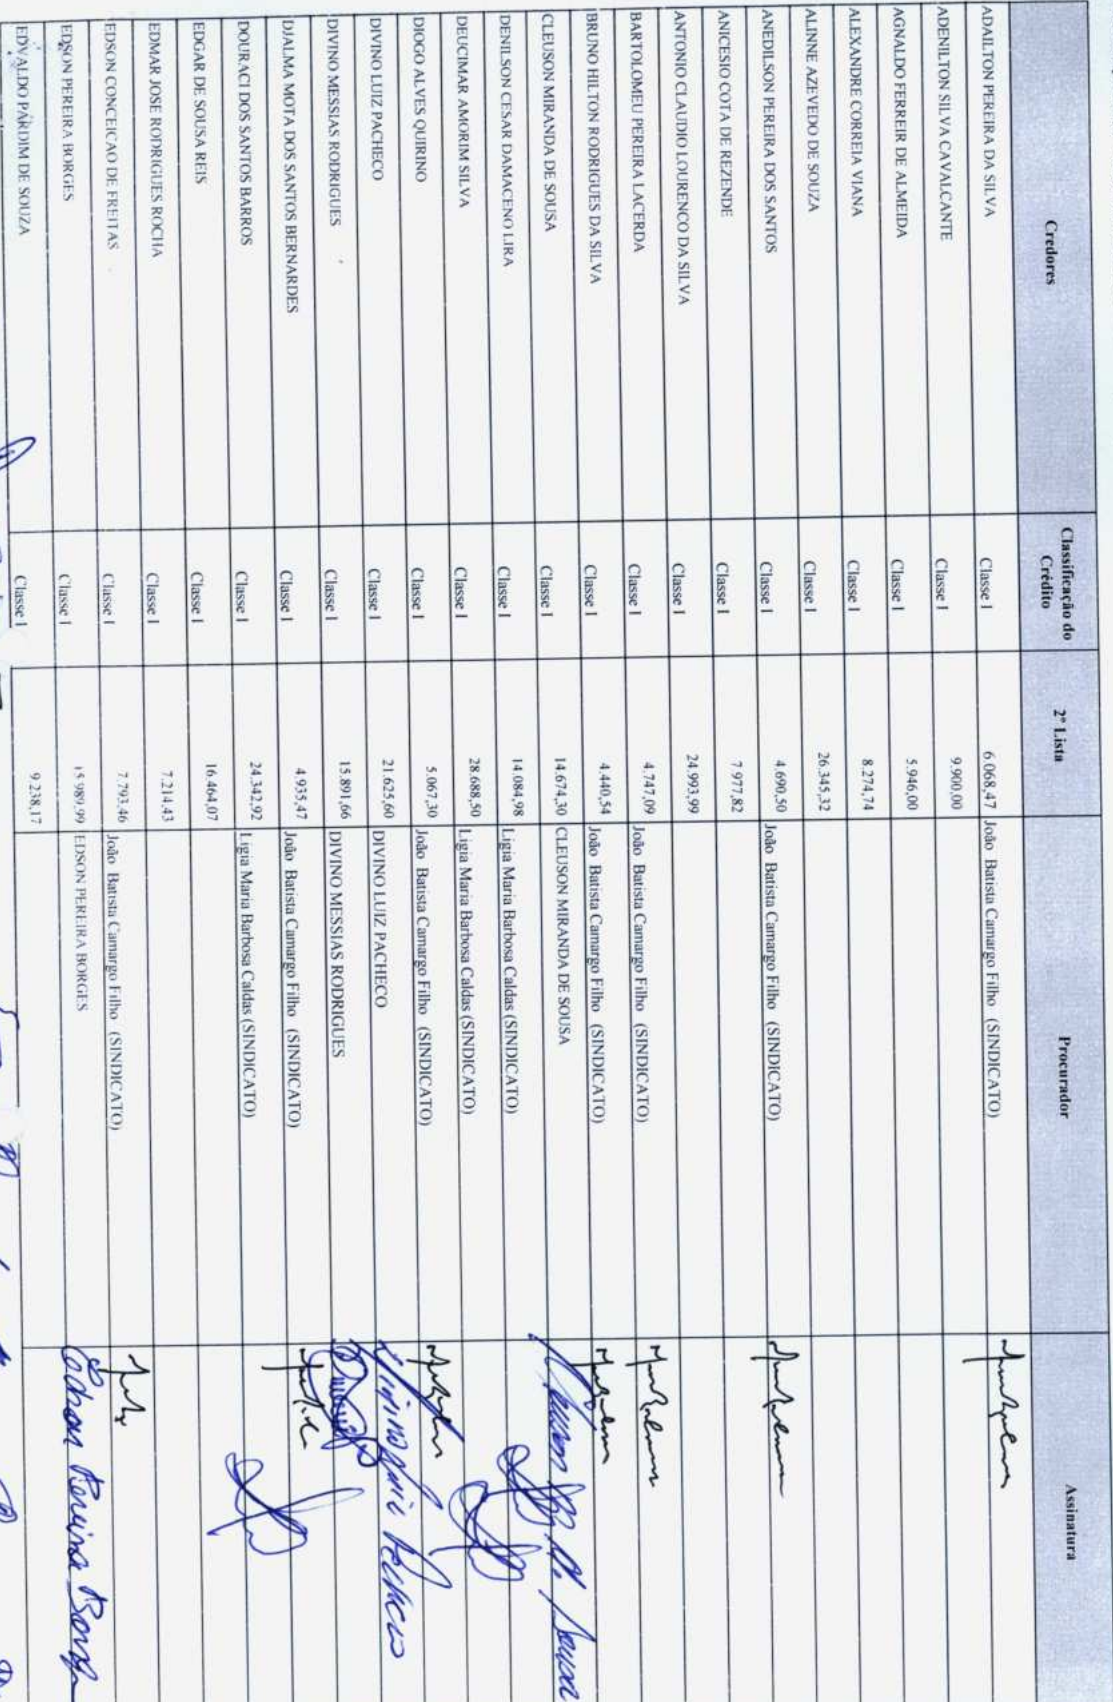 Credores Classificação do Crédito 2ª Lista Procurador Assinatura
ADAILTON PEREIRA DA SILVA Classe I 6.068,47 João Batista Camargo Filho (SINDICATO)
ADENILTON SILVA CAVALCANTE Classe I 9.900,00
AGNALDO FERREIR DE ALMEIDA Classe I 5.946,00
ALEXANDRE CORREIA VIANA Classe I 8.274,74
ALINNE AZEVEDO DE SOUZA Classe I 26.345,32
ANEDILSON PEREIRA DOS SANTOS Classe I 4.690,50 João Batista Camargo Filho (SINDICATO)
ANICESIO COTA DE REZENDE Classe I 7.977,82
ANTONIO CLAUDIO LOURENCO DA SILVA Classe I 24.993,99
BARTOLOMEU PEREIRA LACERDA Classe I 4.747,09 João Batista Camargo Filho (SINDICATO)
BRUNO HILTON RODRIGUES DA SILVA Classe I 4.440,54 João Batista Camargo Filho (SINDICATO)
CLEUSON MIRANDA DE SOUSA Classe I 14.674,30 CLEUSON MIRANDA DE SOUSA
DENILSON CESAR DAMACENO LIRA Classe I 14.084,98 Ligia Maria Barbosa Caldas (SINDICATO)
DEUCIMAR AMORIM SILVA Classe I 28.688,50 Ligia Maria Barbosa Caldas (SINDICATO)
DIOGO ALVES QUIRINO Classe I 5.067,30 João Batista Camargo Filho (SINDICATO)
DIVINO LUIZ PACHECO Classe I 21.625,60 DIVINO LUIZ PACHECO Divino Luiz Pacheco
DIVINO MESSIAS RODRIGUES Classe I 15.891,66 DIVINO MESSIAS RODRIGUES
DJALMA MOTA DOS SANTOS BERNARDES Classe I 4.935,47 João Batista Camargo Filho (SINDICATO)
DOURACI DOS SANTOS BARROS Classe I 24.342,92 Ligia Maria Barbosa Caldas (SINDICATO)
EDGAR DE SOUSA REIS Classe I 16.464,07
EDMAR JOSE RODRIGUES ROCHA Classe I 7.214,43
EDSON CONCEICAO DE FREITAS Classe I 7.793,46 João Batista Camargo Filho (SINDICATO)
EDSON PEREIRA BORGES Classe I 15.989,99 EDSON PEREIRA BORGES Edson Pereira Borges
EDVALDO PARDIM DE SOUZA Classe I 9.238,17